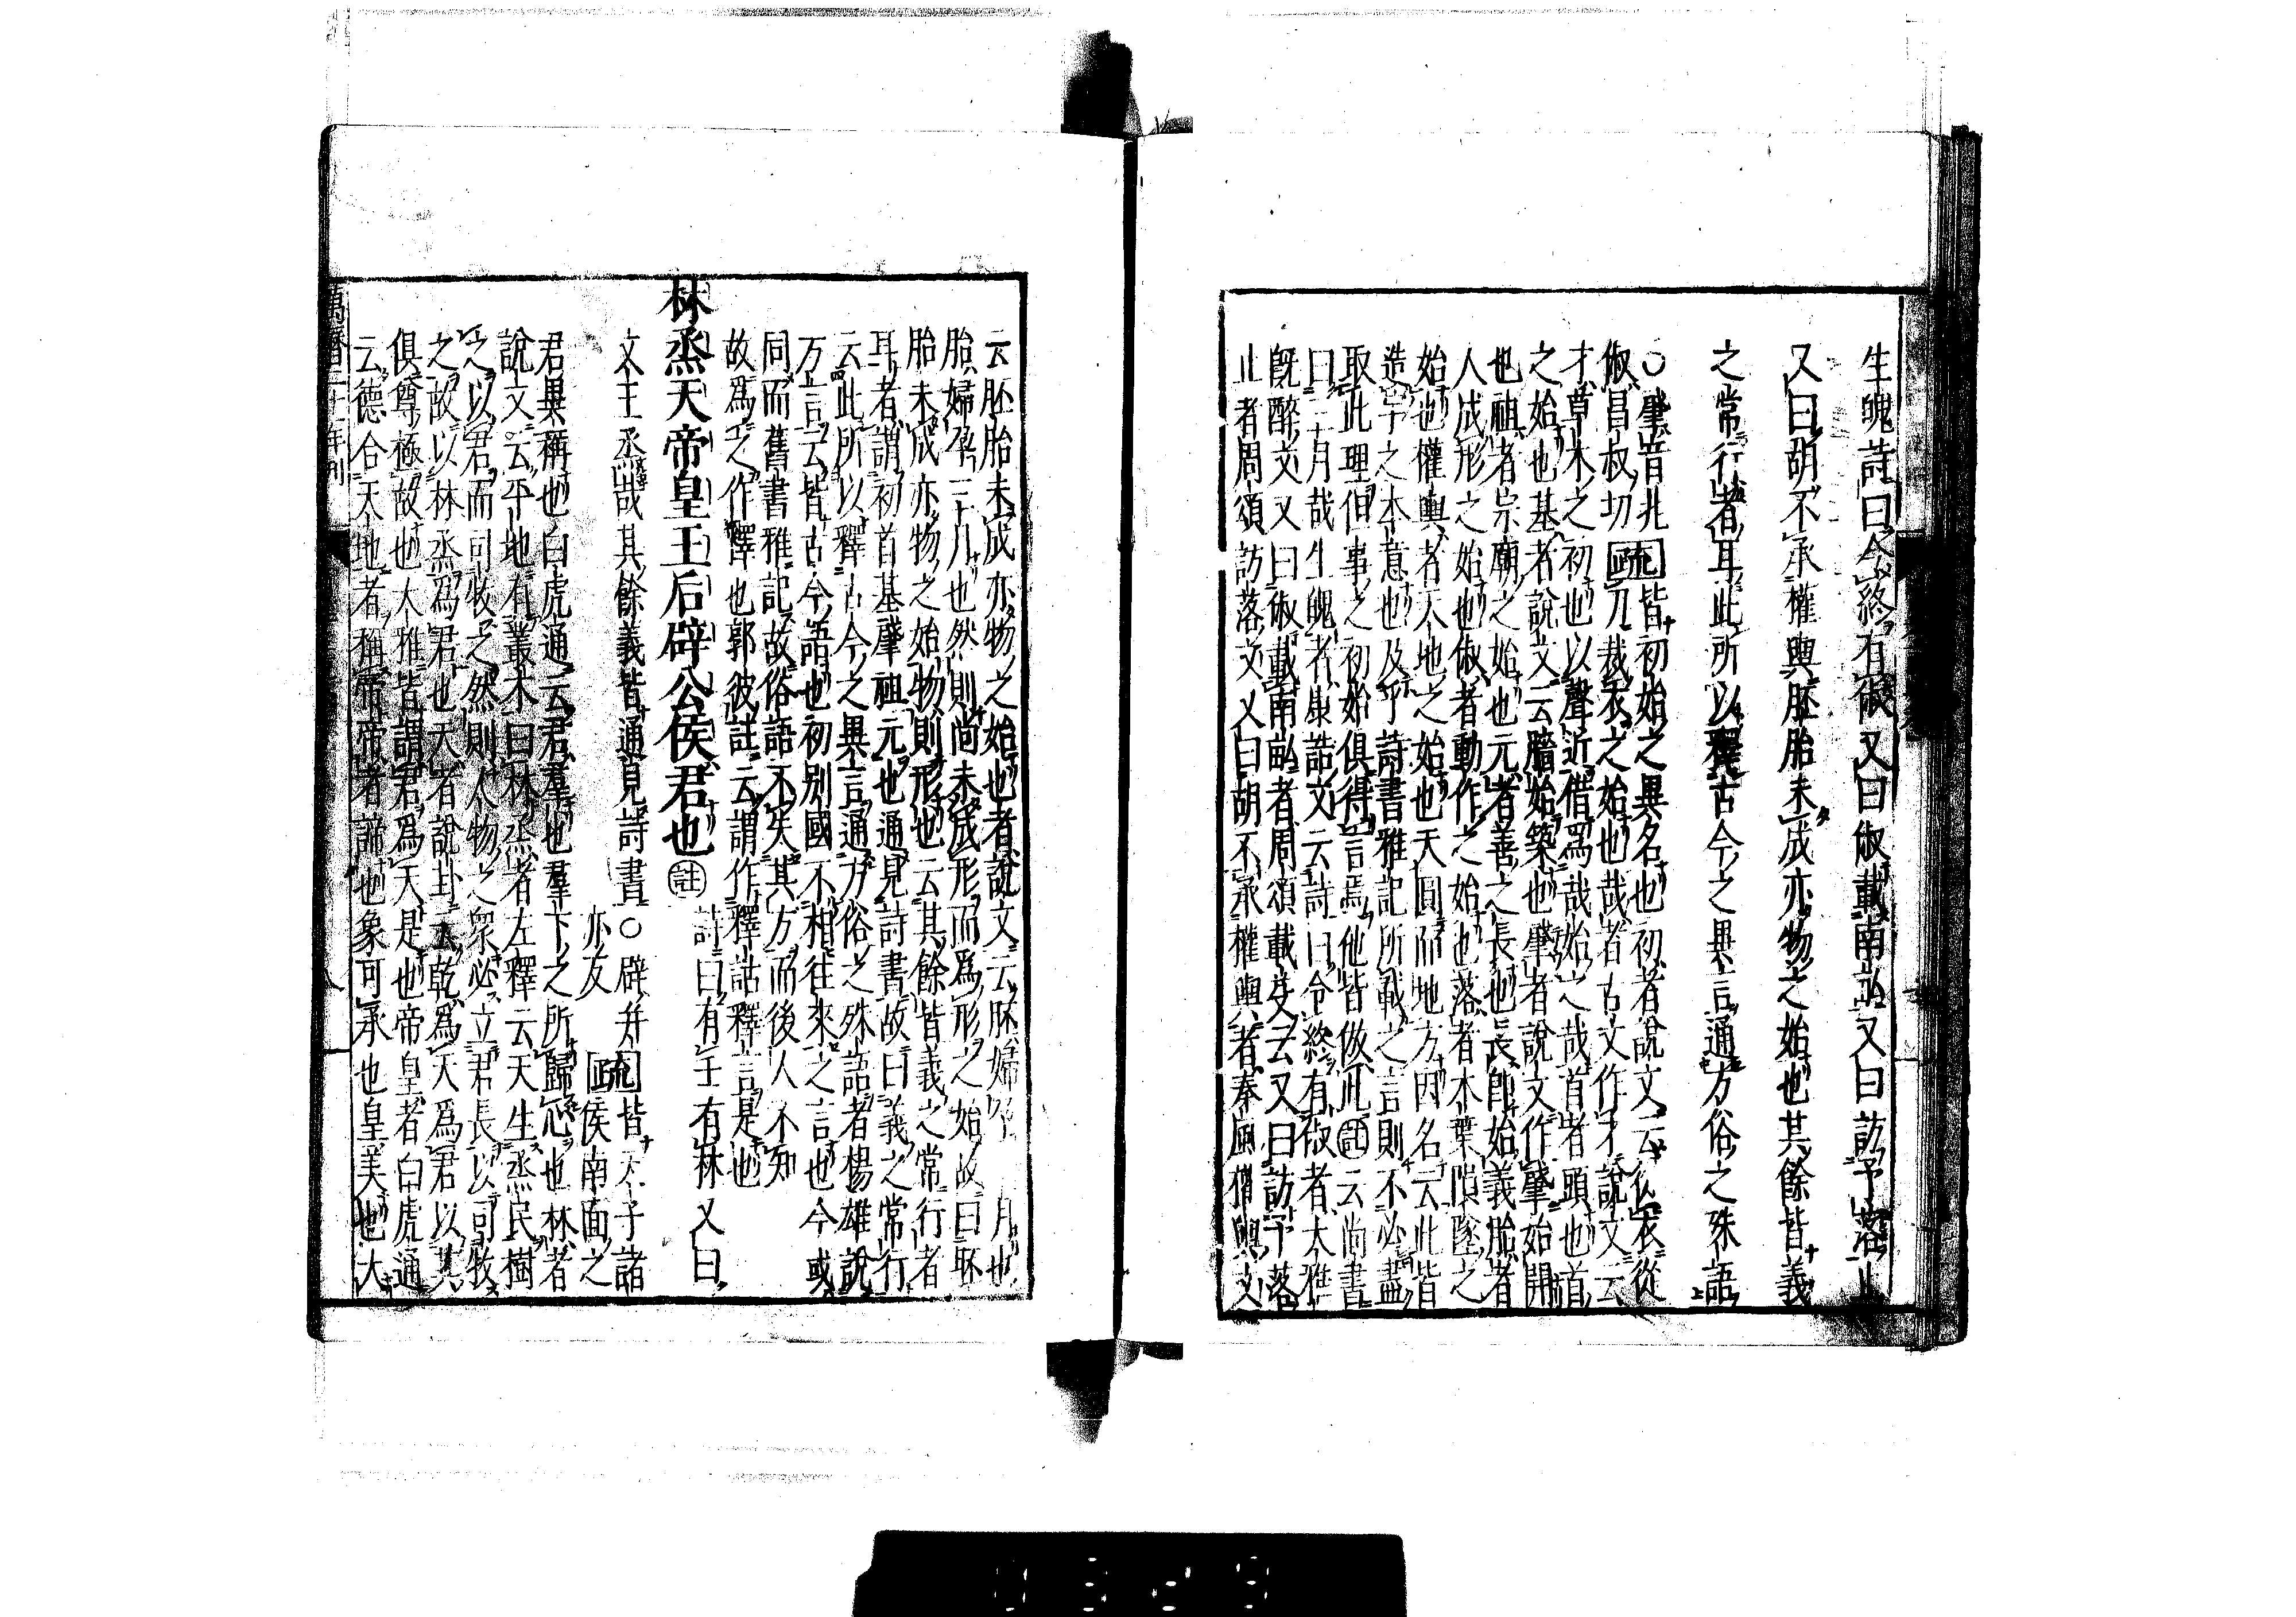 生魄詩曰令終有俶又曰俶載南畝又曰訪予落止
又曰胡不承權輿胚胎未成亦物之始也其餘皆義
之常行者耳此所以釋古今之異言通方俗之殊語
○肇音兆疏皆初始之異名也初者說文云从衣從
俶昌叔切刀裁衣之始也哉者古文作才說文云
才草木之初也以聲近借為哉始之哉首者頭也首
之始也基者說文云牆始築也肇者說文作肁始開
也祖者宗廟之始也元者善之長也長即始義胎者
人成形之始也俶者動作之始也落者木葉隕墜之
始也權輿者天地之始也天圓而地方因名云此皆
造字之本意也及乎詩書雅記所載之言則不必盡
取此理但事之初始俱得言焉他皆倣此註云尚書
曰三月哉生魄者康誥文云詩曰令終有俶者大雅
既醉文又曰俶載南畝者周頌載芟云又曰訪予落
止者周頌訪落文又曰胡不承權輿者秦風權輿文
云胚胎未成亦物之始也者說文云胚婦孕一月也
胎婦孕三月也然則尚未成形而為形之始故曰胚
胎未成亦物之始物則形也云其餘皆義之常行者
耳者謂初首基肇祖元也通見詩書故曰義之常行
云此所以釋古今之異言通方俗之殊語者楊雄說
方言云皆古今語也初別國不相往來之言也今或
同而舊書雅記故俗語不失其方而後人不知
故為之作釋也郭彼註云謂作釋詁釋言是也
林烝天帝皇王后辟公侯君也註詩曰有壬有林又曰
文王烝哉其餘義皆通見詩書○辟并亦友疏皆天子諸侯南面之
君異稱也白虎通云君羣也羣下之所歸心也林者
說文云平地有叢木曰林烝者左釋云天生烝民樹
之以君而司牧之然則人物之眾必立君長以司牧
之故以林烝為君也天者說卦云乾為天為君以其
俱尊極故也大雅皆謂君為天是也帝皇者白虎通
云德合天地者稱帝帝者諦也象可承也皇美也大